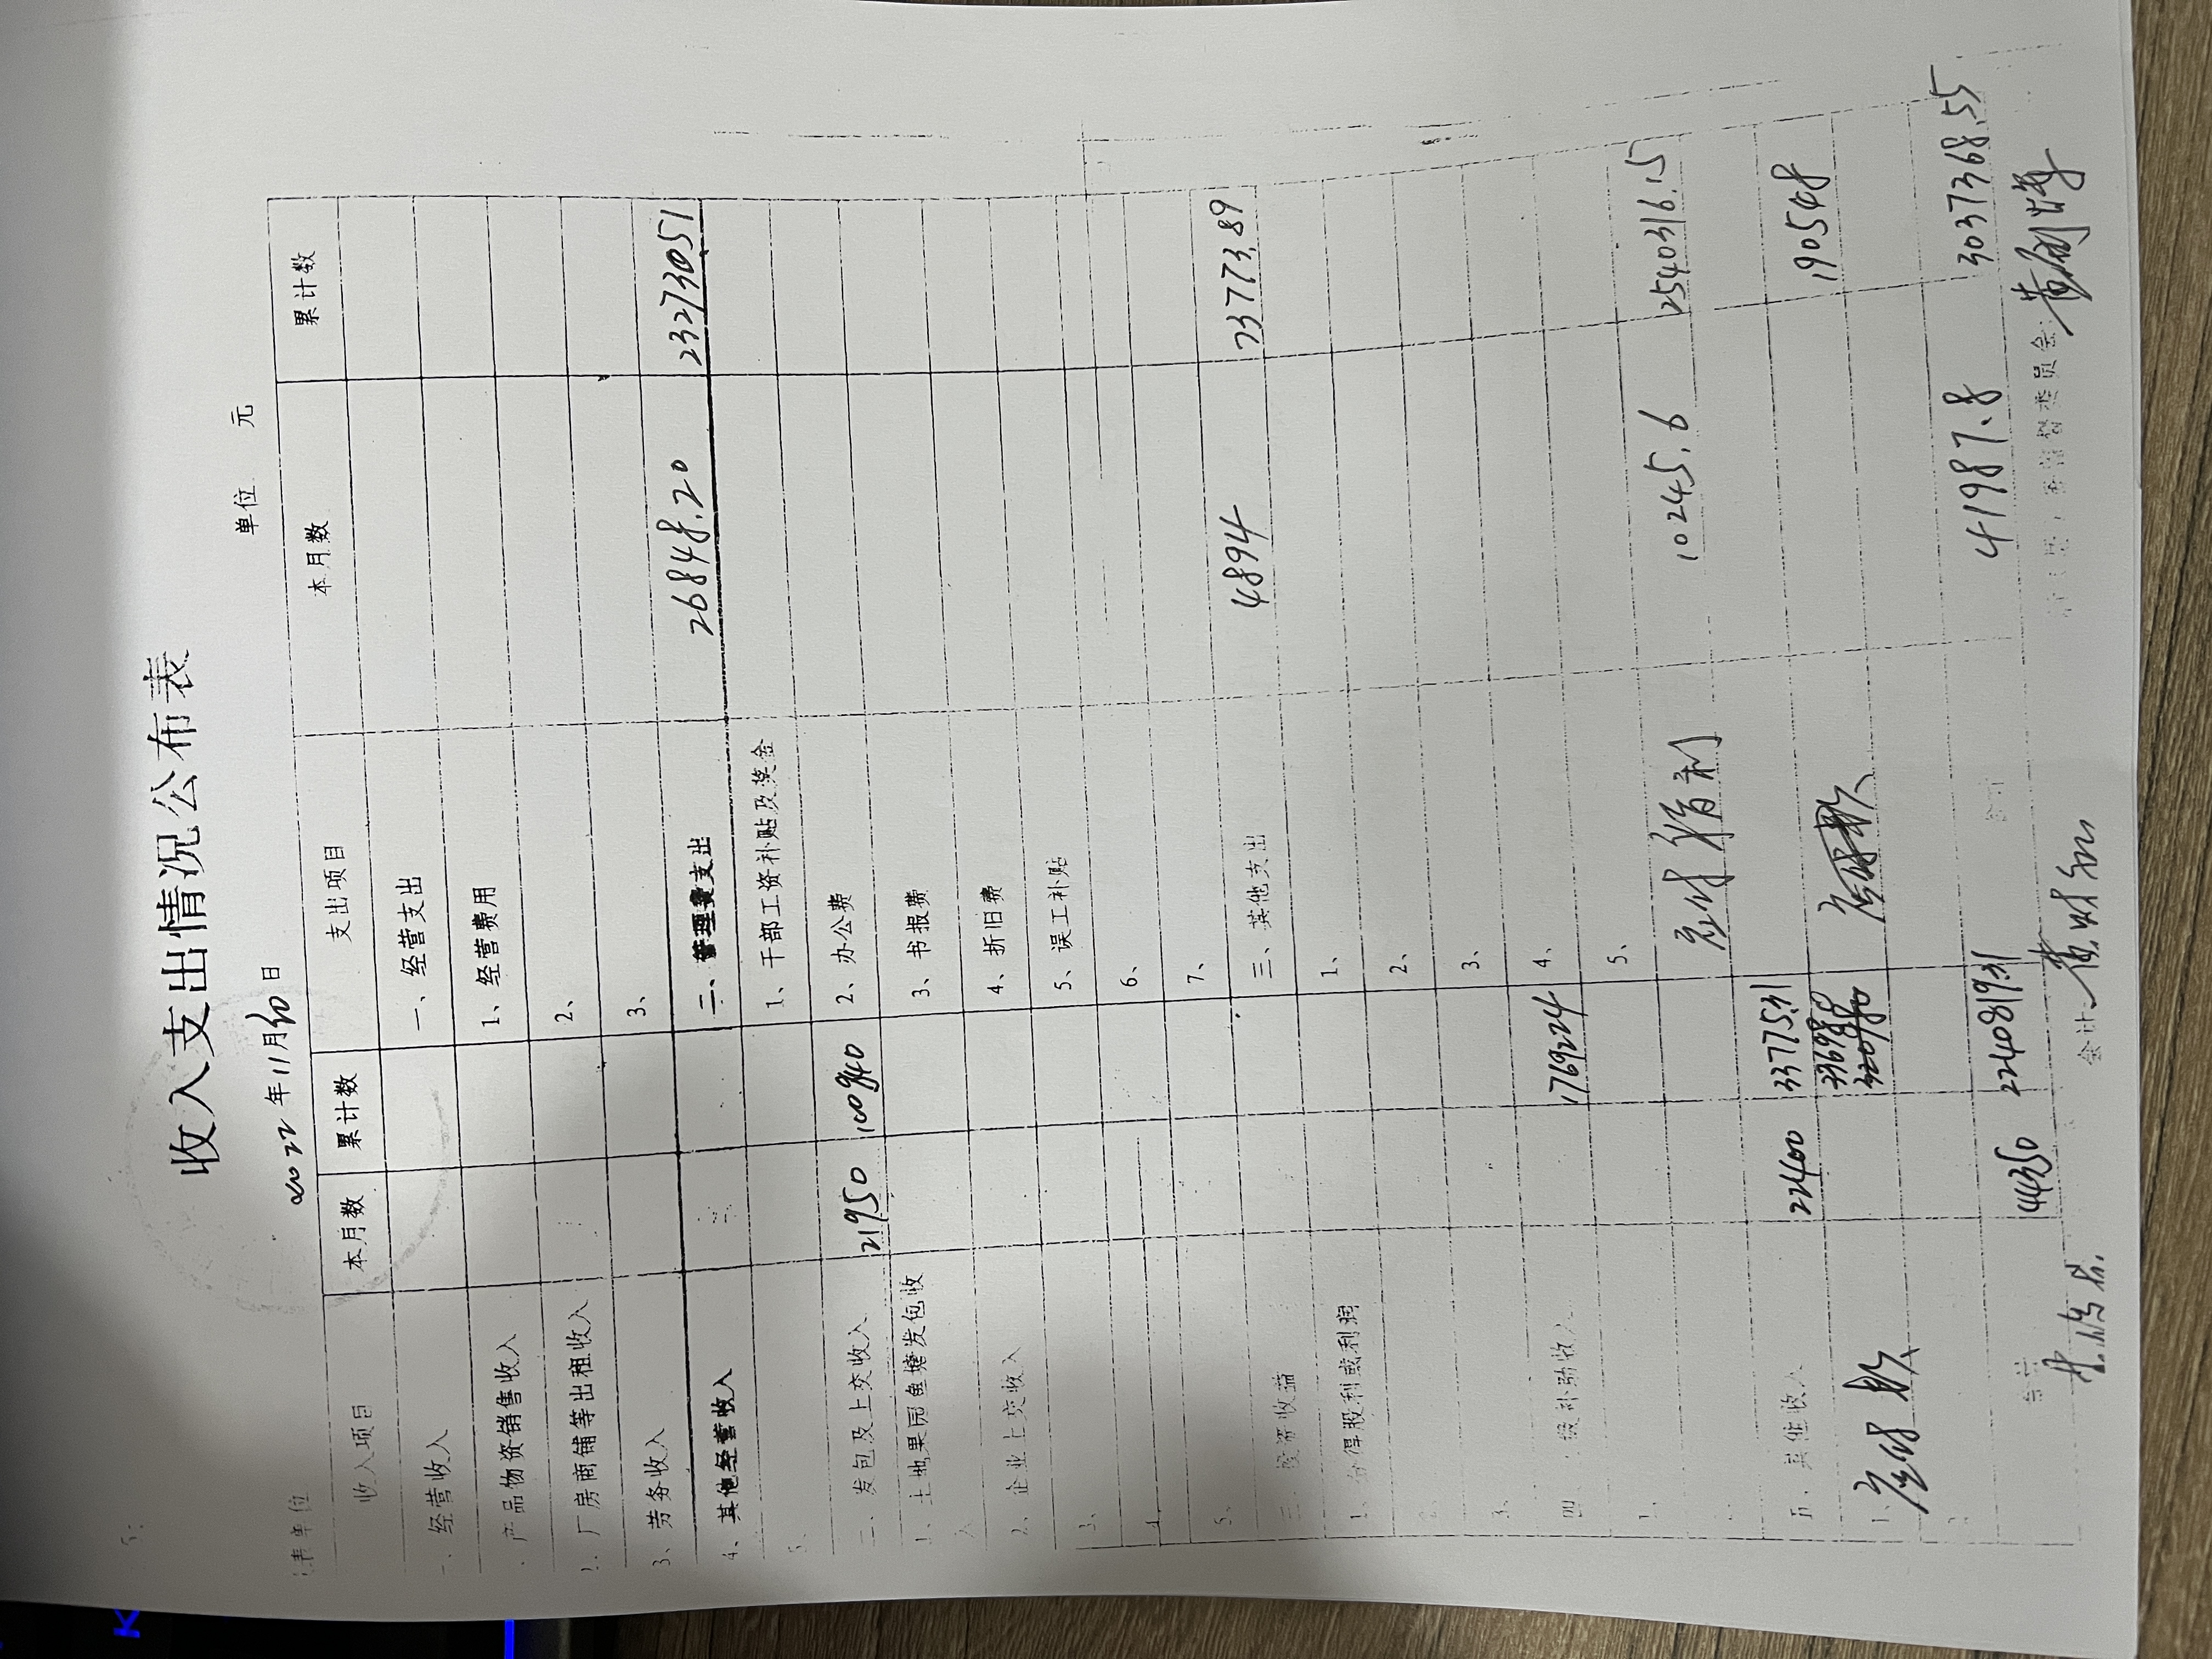 收入支出情况公布表
2022年11月10日 单位 元
收入项目 本月数 累计数 支出项目 本月数 累计数
一、经营收入 一、经营支出
产品物资销售收入 1、经营费用
2、厂房商铺等出租收入 2、
3、劳务收入 3、
4、其他经营收入 二、管理费支出 26848.20
5、 1、干部工资补贴及奖金
二、发包及上交收入 21950 100940 2、办公费
1、土地果园鱼塘发包收入 3、书报费
2、企业上交收入 4、折旧费
3、 5、误工补贴
4、 6、
5、 7、
三、投资收益 三、其他支出 4894 73773.89
1、分得股利或利润 1、
2、 2、
3、 3、
四、 补助收入 1769224 4、
1、 5、
应付福利 10245.6 2540316.15
五、其他收入 22400 337751.31
1、应付款 应付款 190548
合计 44350 2240819.31 合计 41987.8 3037368.55
会计: 监督委员会: